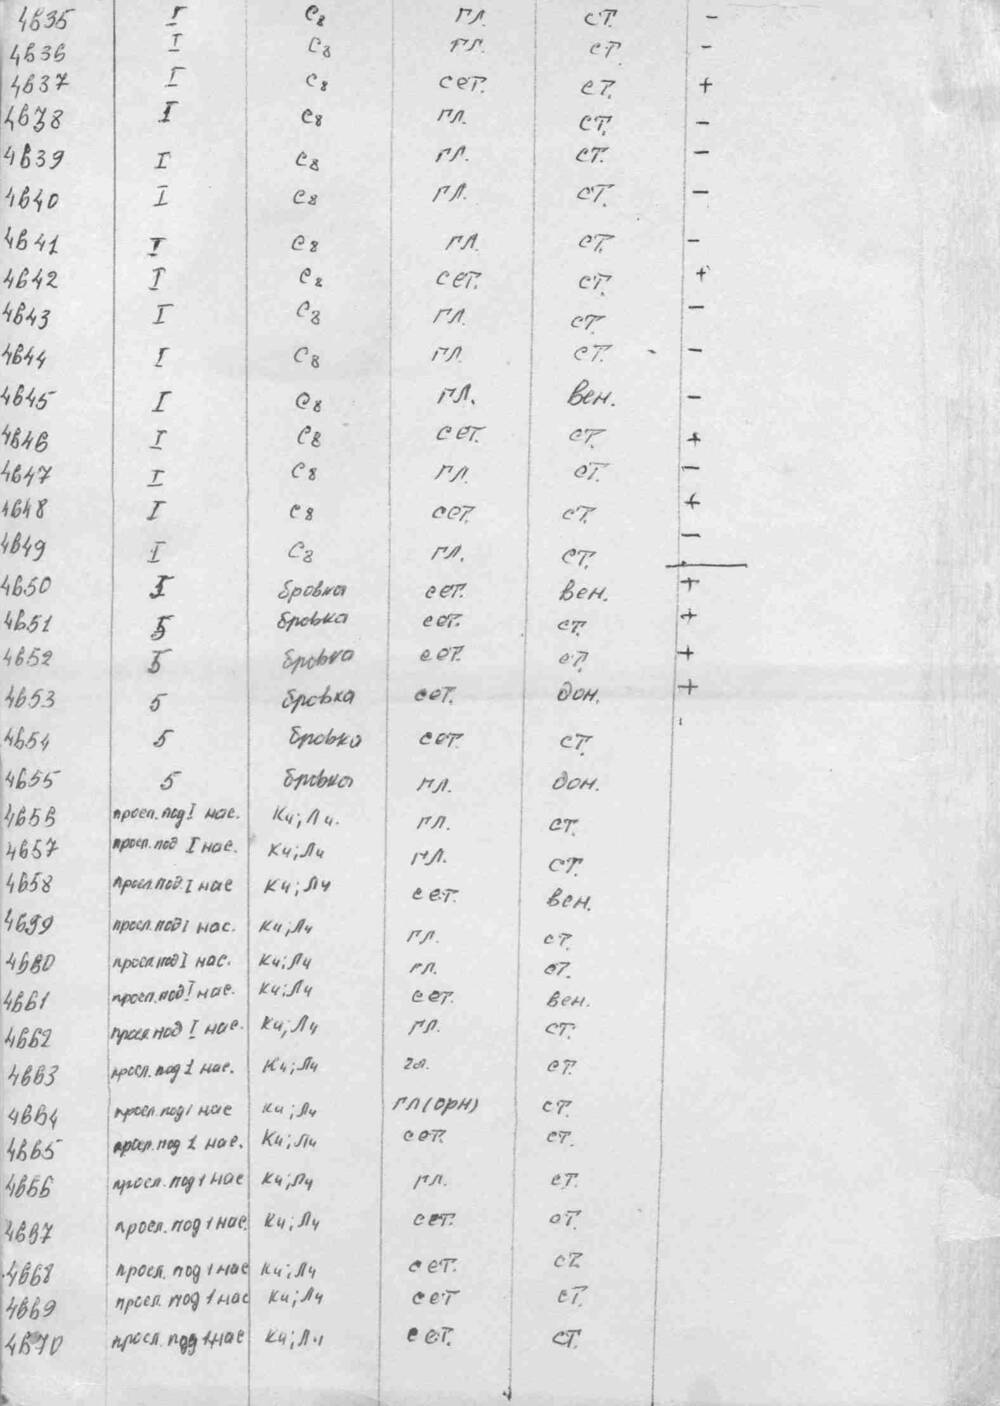 4635 I С8 гл. ст. -
4636 I С8 гл. ст. -
4637 I С8 сет. ст. +
4638 I С8 гл. ст. -
4639 I С8 гл. ст. -
4640 I С8 гл. ст. -
4641 I С8 гл. ст. -
4642 I С8 сет. ст. +
4643 I С8 гл. ст. -
4644 I С8 гл. ст. -
4645 I С8 гл. вен. -
4646 I С8 сет. ст. +
4647 I С8 гл. ст. -
4648 I С8 сет. ст. +
4649 I С8 гл. ст. -
4650 5 бровка сет. вен. +
4651 5 бровка сет. ст. +
4652 5 бровка сет. ст. +
4653 5 бровка сет. дон. +
4654 5 бровка сет. ст.
4655 5 бровка гл. дон.
4656 просл. под I нас. К4; Л4. гл. ст.
4657 просл. под I нас. К4; Л4 гл. ст.
4658 просл. под. I нас К4; Л4 сет. вен.
4659 просл. под I нас. К4; Л4 гл. ст.
4660 просл под I нас. К4; Л4 гл. ст.
4661 просл. под I нас. К4; Л4 сет. вен.
4662 просл. под I нас. К4; Л4 гл. ст.
4663 просл. под 1 нас. К4; Л4 гл. ст.
4664 просл. под 1 нас К4; Л4 гл (орн) ст.
4665 просл. под 1 нас. К4; Л4 сет. ст.
4666 просл. под 1 нас К4; Л4 гл. ст.
4667 просл. под 1 нас. К4; Л4 сет. ст.
4668 просл. под 1 нас К4; Л4 сет. ст
4669 просл. под 1 нас К4; Л4 сет ст.
4670 просл. под 1 нас К4; Л4 сет. ст.